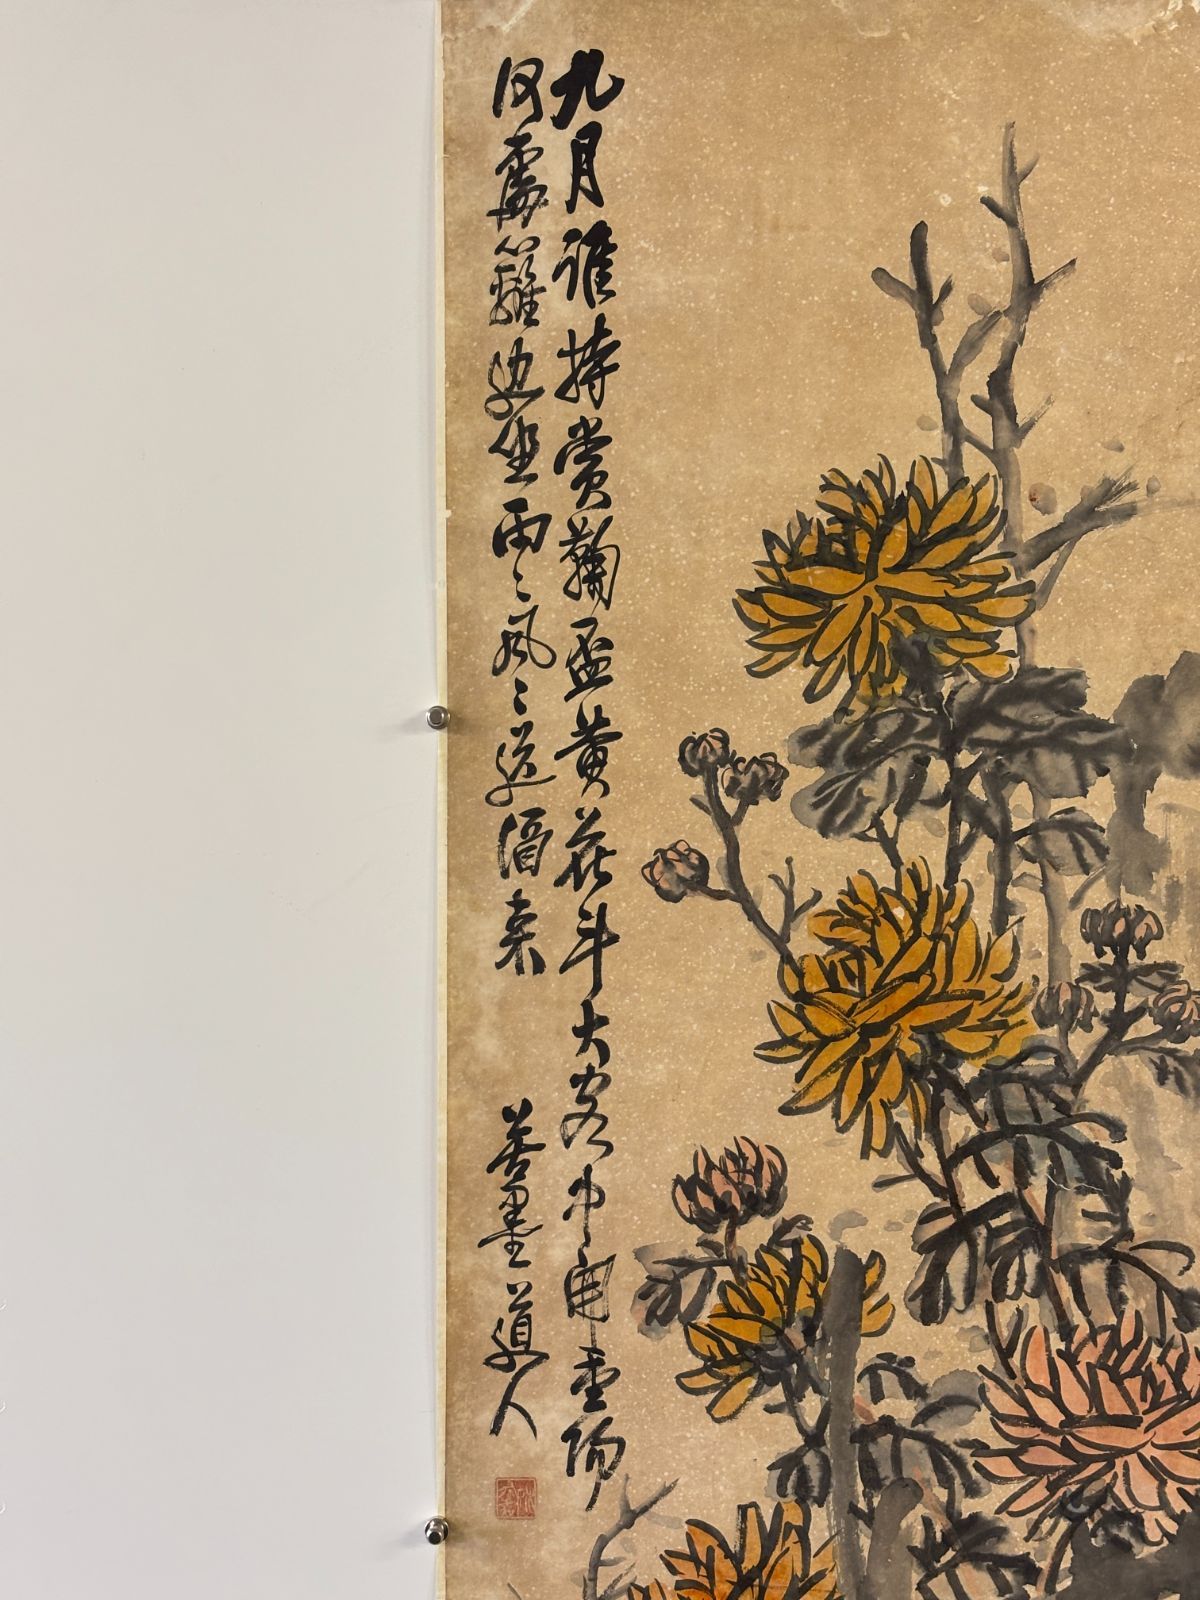 九月誰持賞菊盃黃花斗大客中開重陽
何處籬邊坐雨〻風〻送酒來
苦墨道人